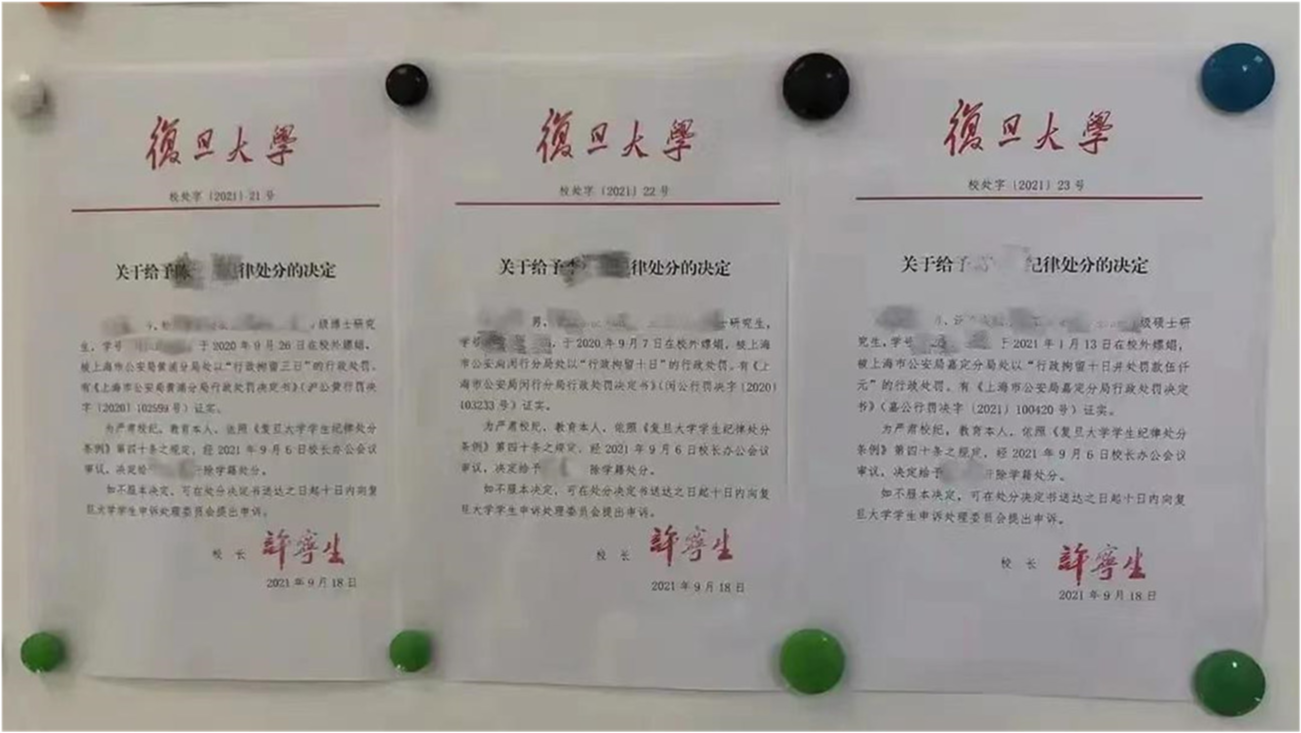 復旦大學
校处字〔2021〕21 号
关于给予陈 律处分的决定
级博士研究
生，学号 ，于 2020 年 9 月 26 日在校外嫖娼，
被上海市公安局黄浦分局处以“行政拘留三日”的行政处罚，
有《上海市公安局黄浦分局行政处罚决定书》（沪公黄行罚决
字〔2020〕102599 号）证实。
为严肃校纪，教育本人，依照《复旦大学学生纪律处分
条例》第四十条之规定，经 2021 年 9 月 6 日校长办公会议
审议，决定给 除学籍处分。
如不服本决定，可在处分决定书送达之日起十日内向复
旦大学学生申诉处理委员会提出申诉。
校 长 許寧生
2021 年 9 月 18 日
復旦大學
校处字〔2021〕22 号
关于给予李 律处分的决定
男， 士研究生，
学号 ，于 2020 年 9 月 7 日在校外嫖娼，被上海
市公安局闵行分局处以“行政拘留十日”的行政处罚，有《上
海市公安局闵行分局行政处罚决定书》（闵公行罚决字〔2020〕
103233 号）证实。
为严肃校纪，教育本人，依照《复旦大学学生纪律处分
条例》第四十条之规定，经 2021 年 9 月 6 日校长办公会议
审议，决定给予 除学籍处分。
如不服本决定，可在处分决定书送达之日起十日内向复
旦大学学生申诉处理委员会提出申诉。
校 长 許寧生
2021 年 9 月 18 日
復旦大學
校处字〔2021〕23 号
关于给予 纪律处分的决定
级硕士研
究生，学号 ，于 2021 年 1 月 13 日在校外嫖娼，
被上海市公安局嘉定分局处以“行政拘留十日并处罚款伍仟
元”的行政处罚，有《上海市公安局嘉定分局行政处罚决定
书》（嘉公行罚决字〔2021〕100420 号）证实。
为严肃校纪，教育本人，依照《复旦大学学生纪律处分
条例》第四十条之规定，经 2021 年 9 月 6 日校长办公会议
审议，决定给予 除学籍处分。
如不服本决定，可在处分决定书送达之日起十日内向复
旦大学学生申诉处理委员会提出申诉。
校 长 許寧生
2021 年 9 月 18 日